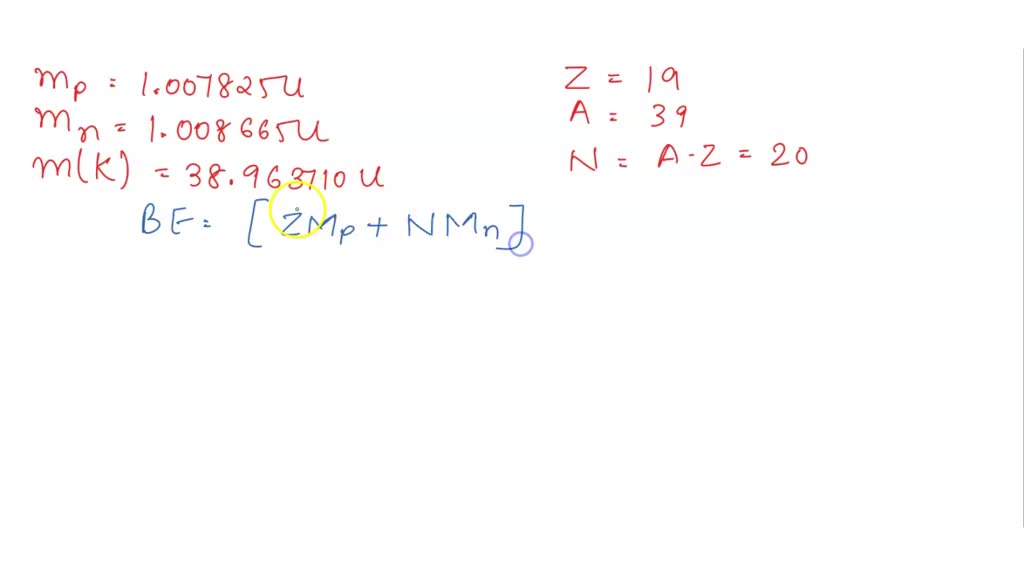 mp = 1.007825U
mn = 1.008665U
m(K) = 38.963710 U
BE = [ZMp + NMn]
Z = 19
A = 39
N = A-Z = 20